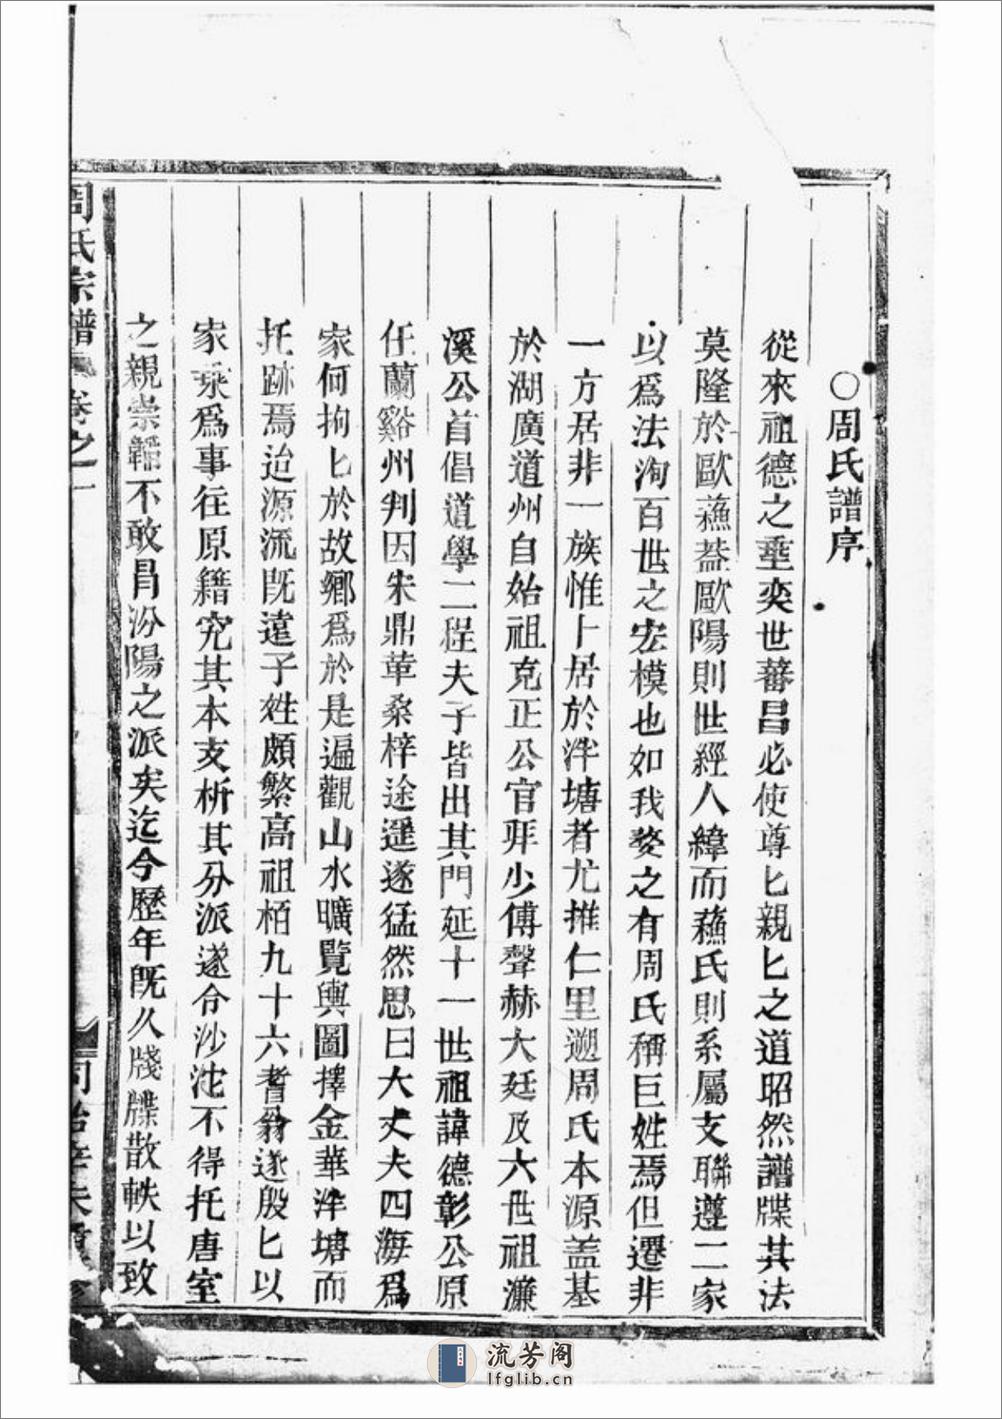 ○周氏譜序
從來祖德之垂奕世蕃昌必使尊匕親匕之道昭然譜牒其法
莫隆於歐蘓葢歐陽則世經人緯而蘓氏則系屬支聯遵二家
以爲法洵百世之宏模也如我婺之有周氏稱巨姓焉但遷非
一方居非一族惟卜居於泮塘者尤推仁里遡周氏本源盖基
於湖廣道州自始祖克正公官拜少傅聲赫大廷及六世祖濂
溪公首倡道學二程夫子皆出其門延十一世祖諱德彰公原
任蘭谿州判因宋鼎革桑梓途遥遂猛然思曰大丈夫四海爲
家何拘匕於故鄉爲於是遍觀山水曠覽輿圖擇金華泮塘而
托跡焉迨源流旣遠子姓頗繁高祖栢九十六耆翁遂殷匕以
家乘爲事往原籍究其本支析其分派遂令沙沱不得托唐室
之親崇韜不敢冒汾陽之派矣迄今歷年旣久牋牒散軼以致
周氏宗譜 卷之一
同治辛未重修
流芳阁
lfglib.cn